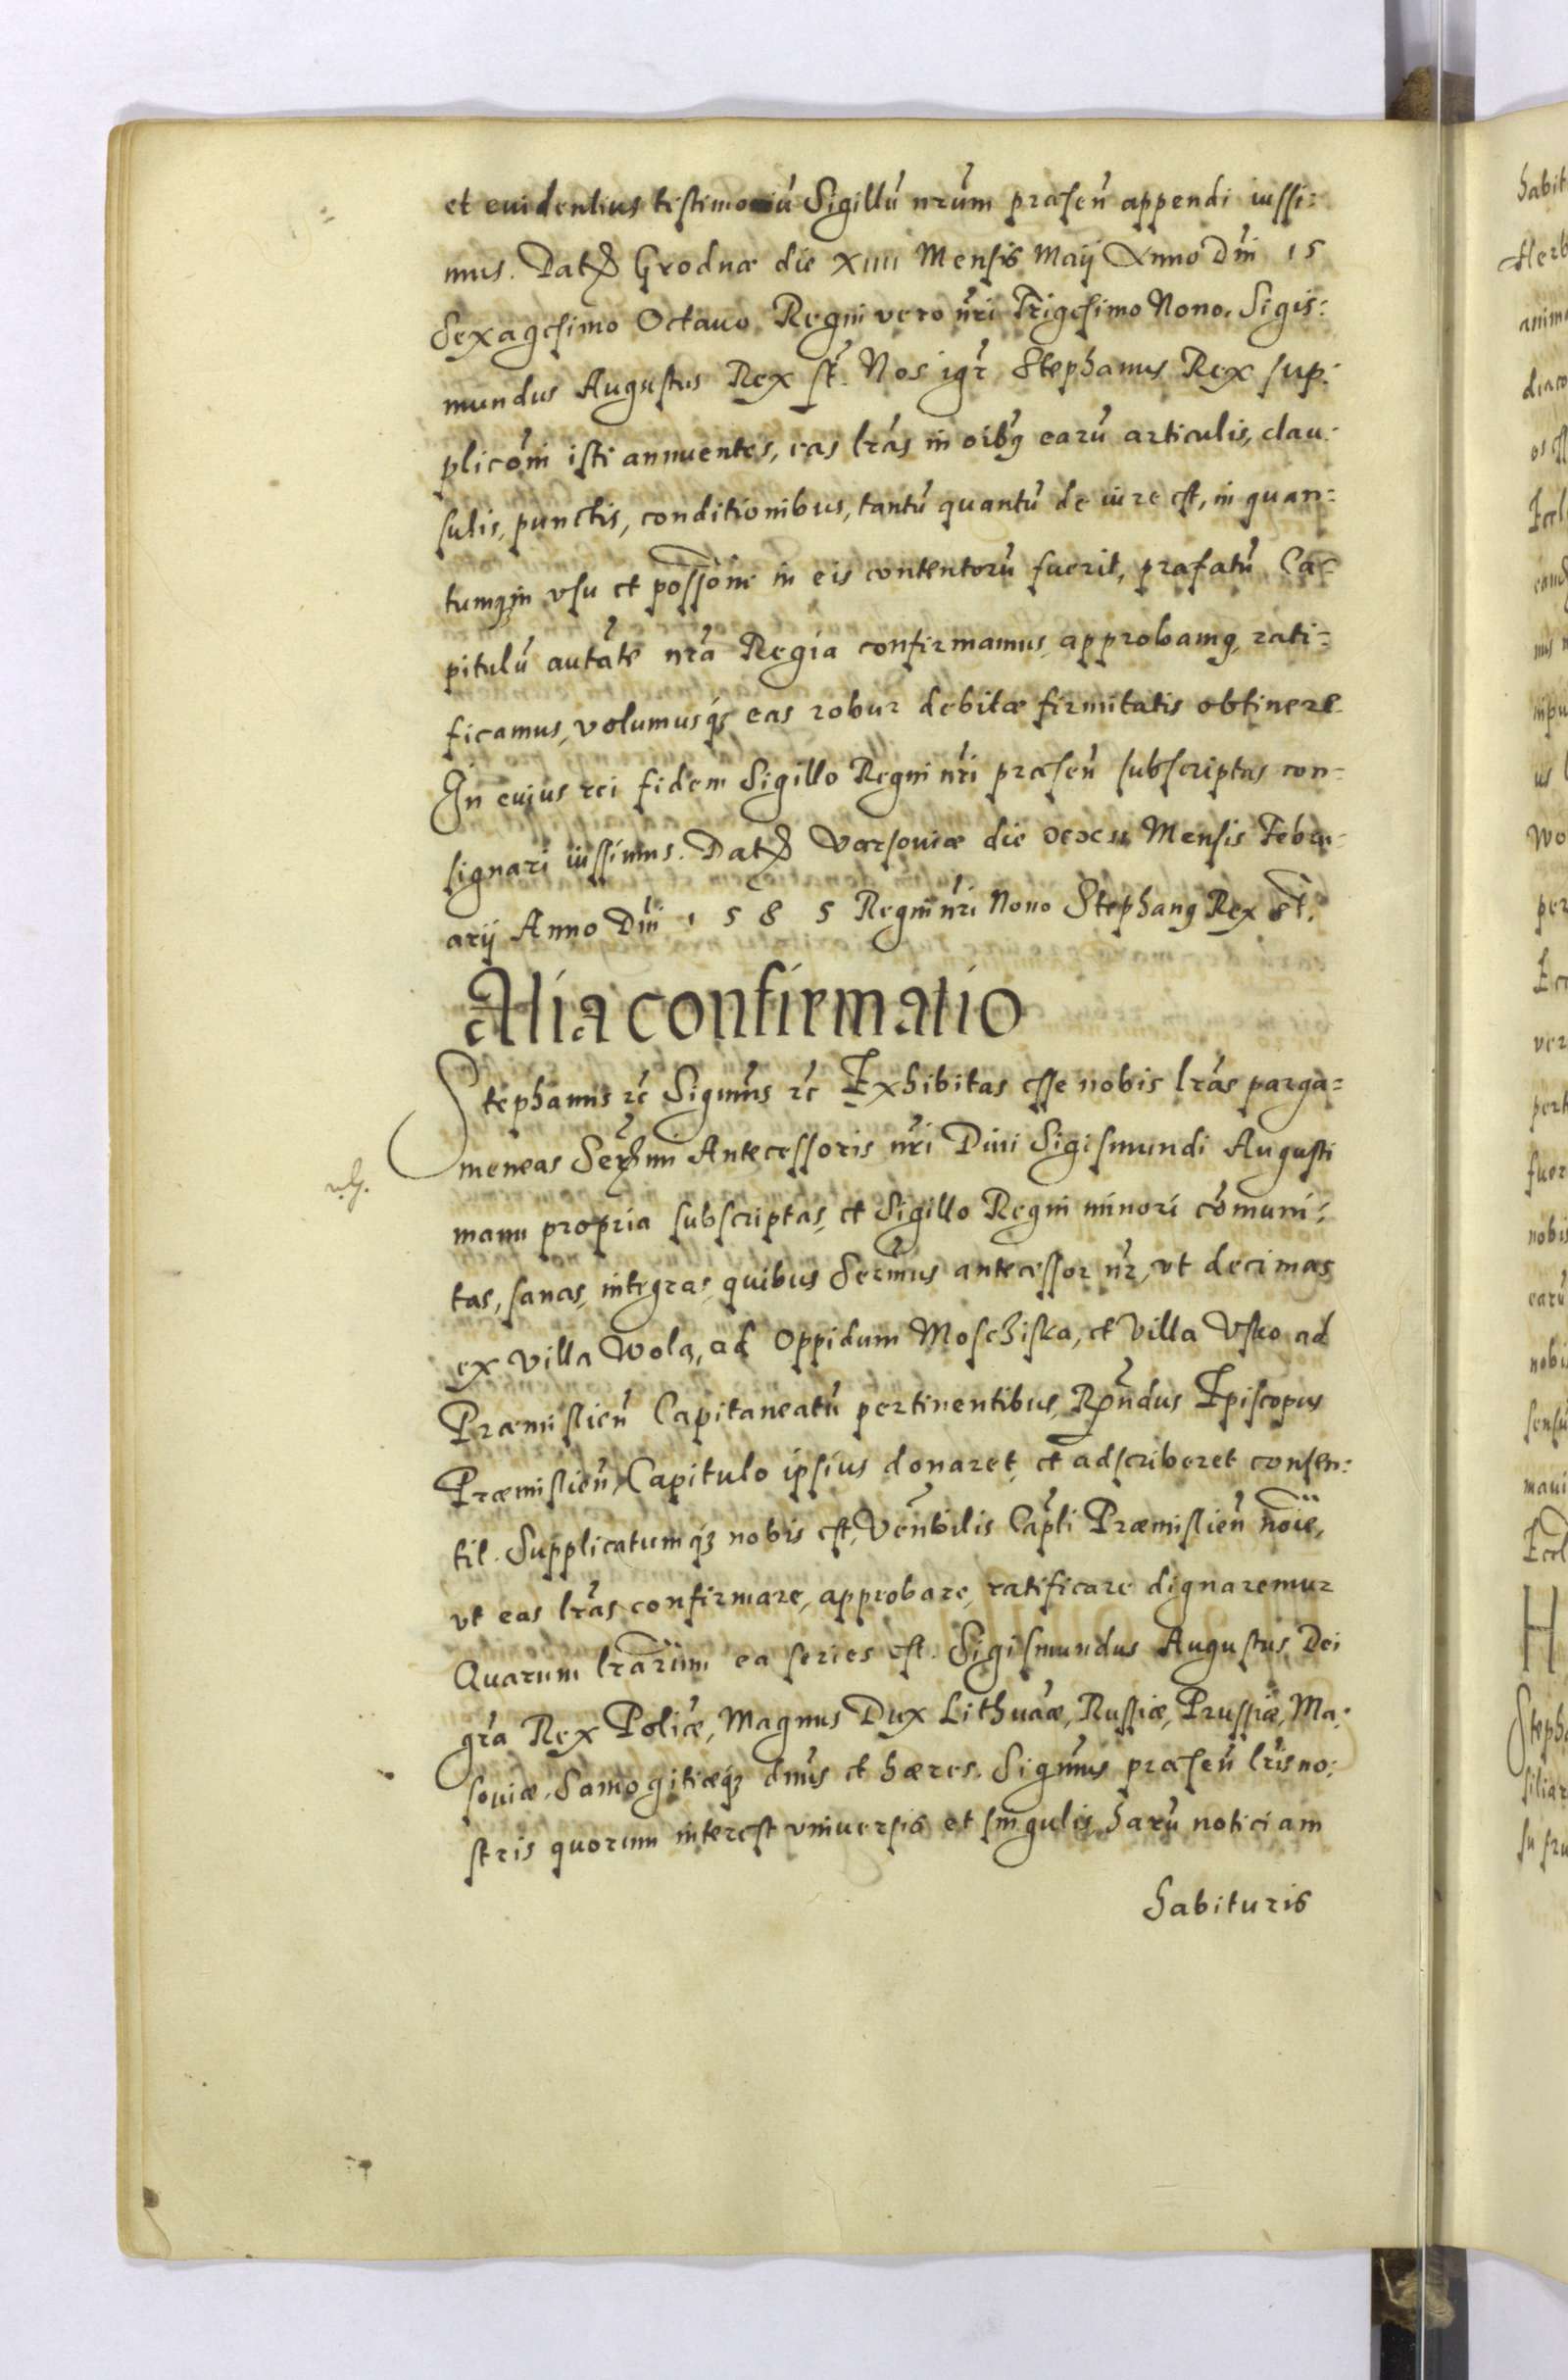 et euidentius testimoniũ Sigillũ nrũm præseñ appendi iussi:
mus. Datp Grodnæ die XIIII Mensis Maij Anno Dñi 15
Sexagesimo Octauo Regni vero ñri Trigesimo Nono. Sigis:
mundus Augustus Rex st. Nos igr̃ Stephanus Rex sup:
plicõni isti annuentes, eas lrãs in oibꝰ earũ articulis, clau:
sulis, punctis, conditionibus, tantũ quantũ de iure est, in quan:
tumq; in vsu et possõni in eis contentorũ fuerit, præfatũ Ca=
pitulũ autãte nrã Regia confirmamus, approbamꝰ, rati=
ficamus, volumusq; eas robur debitæ firmitatis obtinere
In cuius rei fidem Sigillo Regni ñri præseñ subscriptas con=
signari iussimus. Datp Varsouiæ die xxII Mensis Febru=
arij Anno Dñi 1585 Regni ñri Nono Stephanꝰ Rex st.
Alia confirmatio
Stephanus rc̃ Signm̃s rc̃ Exhibitas esse nobis lrãs parga=
meneas Serẽmi Antecessoris ñri Diui Sigismundi Augusti
manu propria subscriptas, et Sigillo Regni minori cõmuni:
tas, sanas, integras, quibus Serm̃us antecessor ñr, vt decimas
ex villa Wola, ad Oppidum Moschiska, et villa Vsko ad
Præmislieñ Capitaneatũ pertinentibus, Rñdus Episcopus
Præmislieñ, Capitulo ipsius donaret, et adscriberet consen:
tit. Supplicatumq; nobis est, Veñbilis Capl̃i Præmislieñ noĩe,
vt eas lrãs confirmare, approbare, ratificare dignaremur
Quarum lrãrum ea series est. Sigismundus Augustus, Dei
grã Rex Poliæ, Magnus Dux Lithuãæ, Russiæ, Prussiæ, Ma:
souiæ, Samogitiæq; dñus et hæres. Signm̃us præseñ lrĩs no:
stris quorum interest vniuersis et singulis, harũ noticiam
habituris